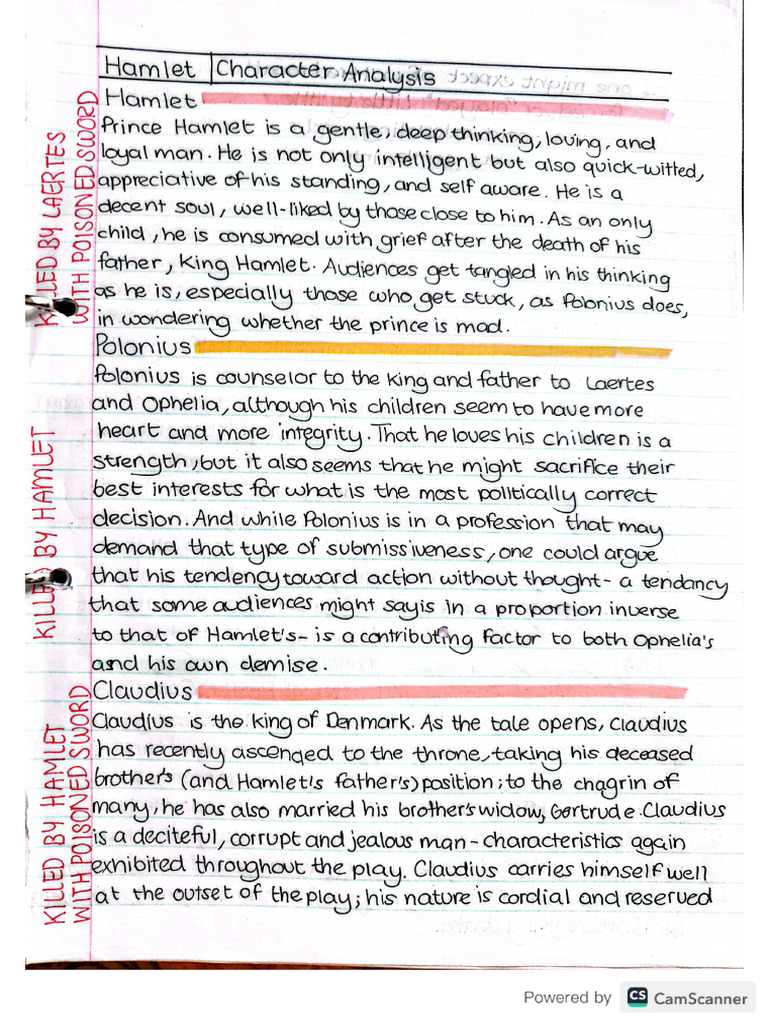 Hamlet | Character Analysis
Hamlet
Prince Hamlet is a gentle, deep thinking, loving, and
loyal man. He is not only intelligent but also quick-witted,
appreciative of his standing, and self aware. He is a
decent soul, well-liked by those close to him. As an only
child, he is consumed with grief after the death of his
father, King Hamlet. Audiences get tangled in his thinking
as he is, especially those who get stuck, as Polonius does,
in wondering whether the prince is mad.
KILLED BY LAERTES
WITH POISONED SWORD
Polonius
Polonius is counselor to the king and father to Laertes
and Ophelia, although his children seem to have more
heart and more integrity. That he loves his children is a
strength, but it also seems that he might sacrifice their
best interests for what is the most politically correct
decision. And while Polonius is in a profession that may
demand that type of submissiveness, one could argue
that his tendency toward action without thought - a tendancy
that some audiences might say is in a proportion inverse
to that of Hamlet's - is a contributing factor to both Ophelia's
and his own demise.
KILLED BY HAMLET
Claudius
Claudius is the king of Denmark. As the tale opens, Claudius
has recently ascended to the throne, taking his deceased
brother's (and Hamlet's father's) position; to the chagrin of
many, he has also married his brother's widow, Gertrude. Claudius
is a deciteful, corrupt and jealous man - characteristics again
exhibited throughout the play. Claudius carries himself well
at the outset of the play; his nature is cordial and reserved
KILLED BY HAMLET
WITH POISONED SWORD
Powered by CS CamScanner